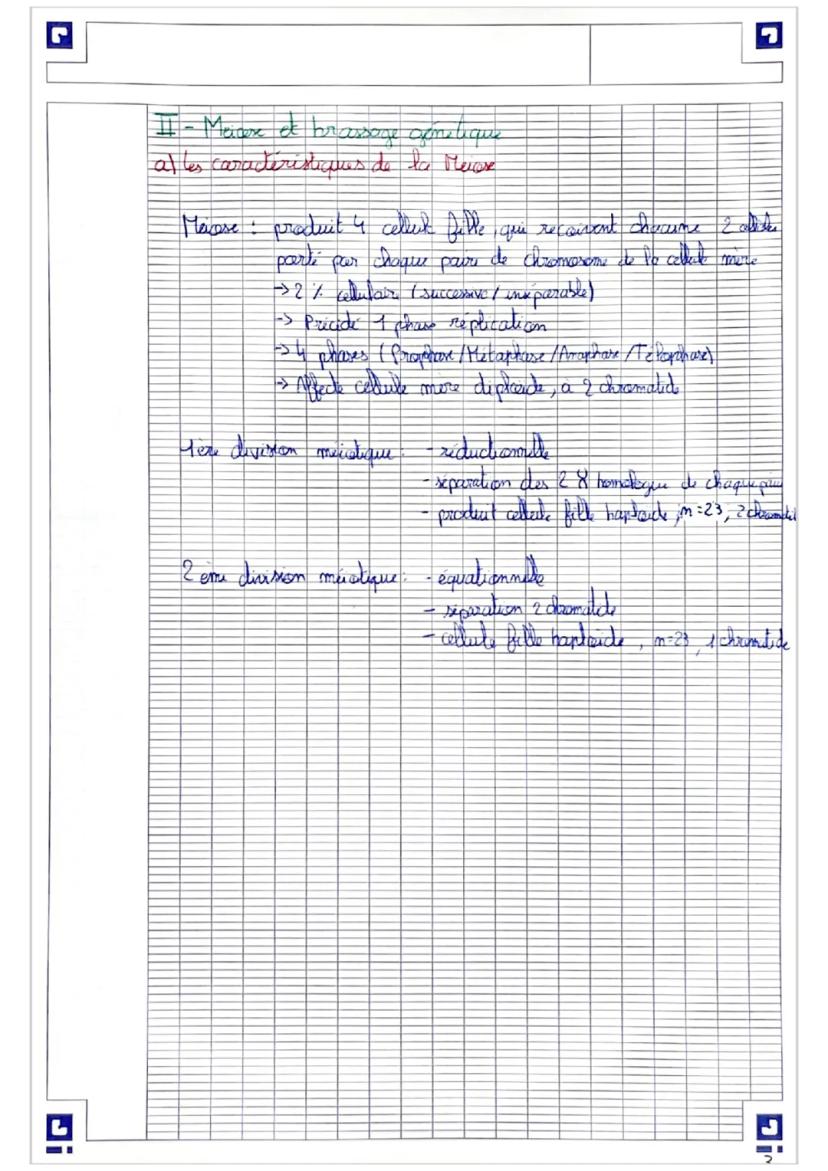 II - Meiose et brassage génétique
a) les caractéristiques de la Meiose
Meiose : produit 4 cellule fille, qui recoivent chacune 2
porté par chaque paire de chromosome de la cellule mère
-> 2 % cellulair (successive / inséparable)
-> Précidé 1 phase réplication
-> 4 phases (Prophase / Métaphase / Anaphase / Télophase)
-> Affecte cellule mère diploide, à 2 chromatid
1ère division méiotique : - réductionnelle
- séparation des 2 X homologue de chaque pair
- produit cellule fille haploide, n=23, 2 chromatid
2 ème division méiotique : - équationnelle
- séparation 2 chromatide
- cellule fille haploide, n=23, 1 chromatide
2